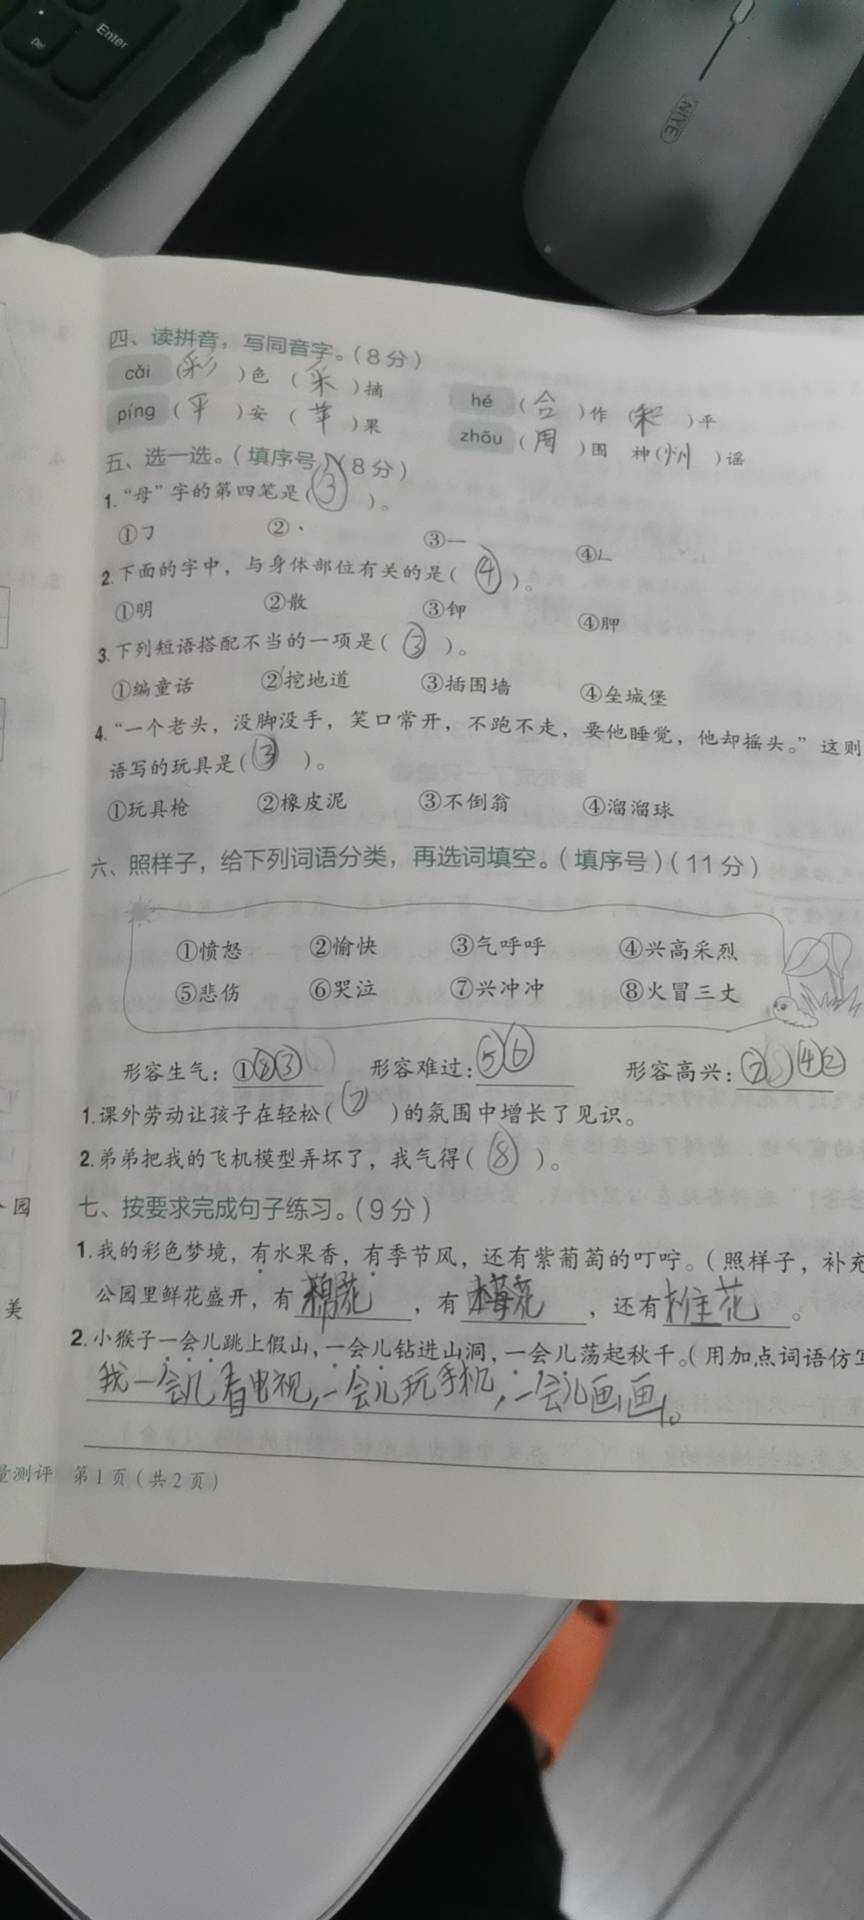 Enter
De
NIYE
四、读拼音，写同音字。（8分）
cǎi （彩）色 （采）摘 hé （合）作 （和）平
píng （平）安 （苹）果 zhōu （周）围 神（州）谣
五、选一选。（填序号）（8分）
1.“母”字的第四笔是（③）。
①㇆ ②丶 ③一 ④㇄
2.下面的字中，与身体部位有关的是（④）。
①明 ②散 ③钾 ④胛
3.下列短语搭配不当的一项是（③）。
①编童话 ②挖地道 ③插围墙 ④垒城堡
4.“一个老头，没脚没手，笑口常开，不跑不走，要他睡觉，他却摇头。”这则
语写的玩具是（③）。
①玩具枪 ②橡皮泥 ③不倒翁 ④溜溜球
六、照样子，给下列词语分类，再选词填空。（填序号）（11分）
①愤怒 ②愉快 ③气呼呼 ④兴高采烈
⑤悲伤 ⑥哭泣 ⑦兴冲冲 ⑧火冒三丈
形容生气：①⑧③ 形容难过：⑤⑥ 形容高兴：⑦④②
1.课外劳动让孩子在轻松（②）的氛围中增长了见识。
2.弟弟把我的飞机模型弄坏了，我气得（⑧）。
七、按要求完成句子练习。（9分）
1.我的彩色梦境，有水果香，有季节风，还有紫葡萄的叮咛。（照样子，补充
公园里鲜花盛开，有棉花，有梅花，还有桂花。
2.小猴子一会儿跳上假山，一会儿钻进山洞，一会儿荡起秋千。（用加点词语仿写
我一会儿看电视，一会儿玩手机，一会儿画画。
量测评 第1页（共2页）
园
美